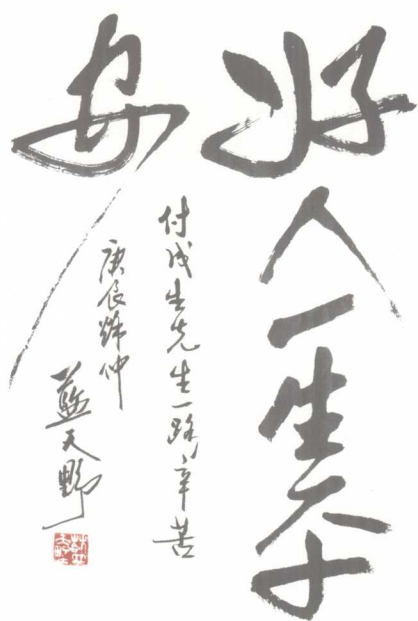 好人一生平
安
付成生先生一路辛苦
庚辰姊仲
蓝天野